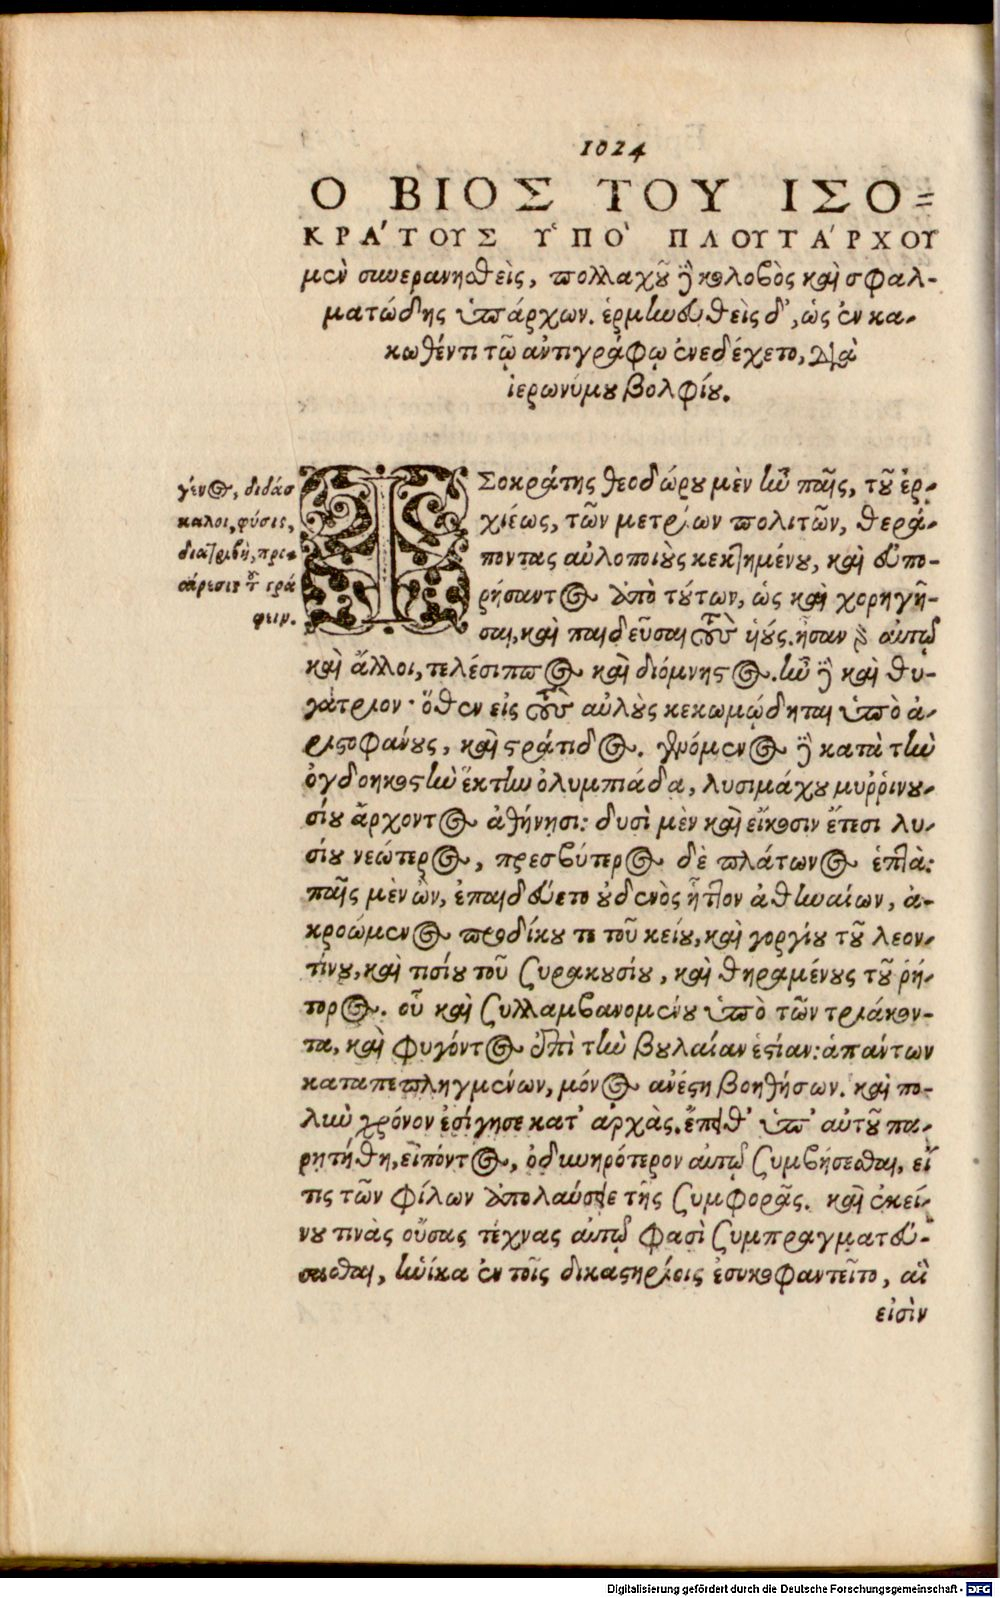 1024
Ο ΒΙΟΣ ΤΟΥ ΙΣΟ=
ΚΡΑ΄ΤΟΥΣ Υ῾ΠΟ` ΠΛΟΥΤΑ΄ΡΧΟΥ
μὲν συνερανισθεὶς, πολλαχοῦ δὲ κολοβὸς καὶ σφαλ-
ματώδης ὑπάρχων. ἑρμηνευθεὶς δ᾽, ὡς ἐν κα-
κωθέντι τῷ ἀντιγράφῳ ἐνεδέχετο, διὰ
ἱερωνύμου βολφίου.
γένος, διδάσ
καλοι, φύσις,
διατριβὴ, προ-
αίρεσις τοῦ γρά
φειν.
ΙΣοκράτης θεοδώρου μὲν ἦν παῖς, τοῦ ἐρ-
χιέως, τῶν μετρίων πολιτῶν, θερά-
ποντας αὐλοποιοὺς κεκτημένου, καὶ εὐπο-
ρήσαντος ἀπὸ τούτων, ὡς καὶ χορηγῆ-
σαι, καὶ παιδεῦσαι τοὺς ἱιούς. ἦσαν γὰρ αὐτῷ
καὶ ἄλλοι, τελέσιππος καὶ διόμνηστος. ἦν δὲ καὶ θυ-
γάτριον· ὅθεν εἰς τοὺς αὐλοὺς κεκωμῴδηται ὑπὸ ἀ-
ριστοφάνους, καὶ στράτιδος. γενόμενος δὲ κατὰ τὴν
ὀγδοηκοστὴν ἕκτην ὀλυμπιάδα, λυσιμάχου μυῤῥινου-
σίου ἄρχοντος ἀθήνησι: δυσὶ μὲν καὶ εἴκοσιν ἔτεσι λυ-
σίου νεώτερος, πρεσβύτερος δὲ πλάτωνος ἑπτὰ:
παῖς μὲν ὢν, ἐπαιδεύετο οὐδενὸς ἧττον ἀθηναίων, ἀ-
κροώμενος προδίκου τε τοῦ κείου, καὶ γοργίου τοῦ λεον-
τίνου, καὶ τισίου τοῦ συρακουσίου, καὶ θηραμένους τοῦ ῥή-
τορος. οὗ καὶ συλλαμβανομένου ὑπὸ τῶν τριάκον-
τα, καὶ φυγόντος ἐπὶ τὴν βουλαίαν ἑστίαν: ἁπάντων
καταπεπληγμένων, μόνος ἀνέστη βοηθήσων. καὶ πο-
λὺν χρόνον ἐσίγησε κατ᾽ ἀρχὰς. ἔπειθ᾽ ὑπ᾽ αὐτοῦ πα-
ρητήθη, εἰπόντος, ὀδυνηρότερον αὐτῷ συμβήσεσθαι, εἴ
τις τῶν φίλων ἀπολαύσειε τῆς συμφορᾶς. καὶ ἐκεί-
νου τινὰς οὔσας τέχνας αὐτῷ φασὶ συμπραγματεύ-
σασθαι, ἡνίκα ἐν τοῖς δικαστηρίοις ἐσυκοφαντεῖτο, αἵ
εἰσὶν
Digitalisierung gefördert durch die Deutsche Forschungsgemeinschaft - DFG